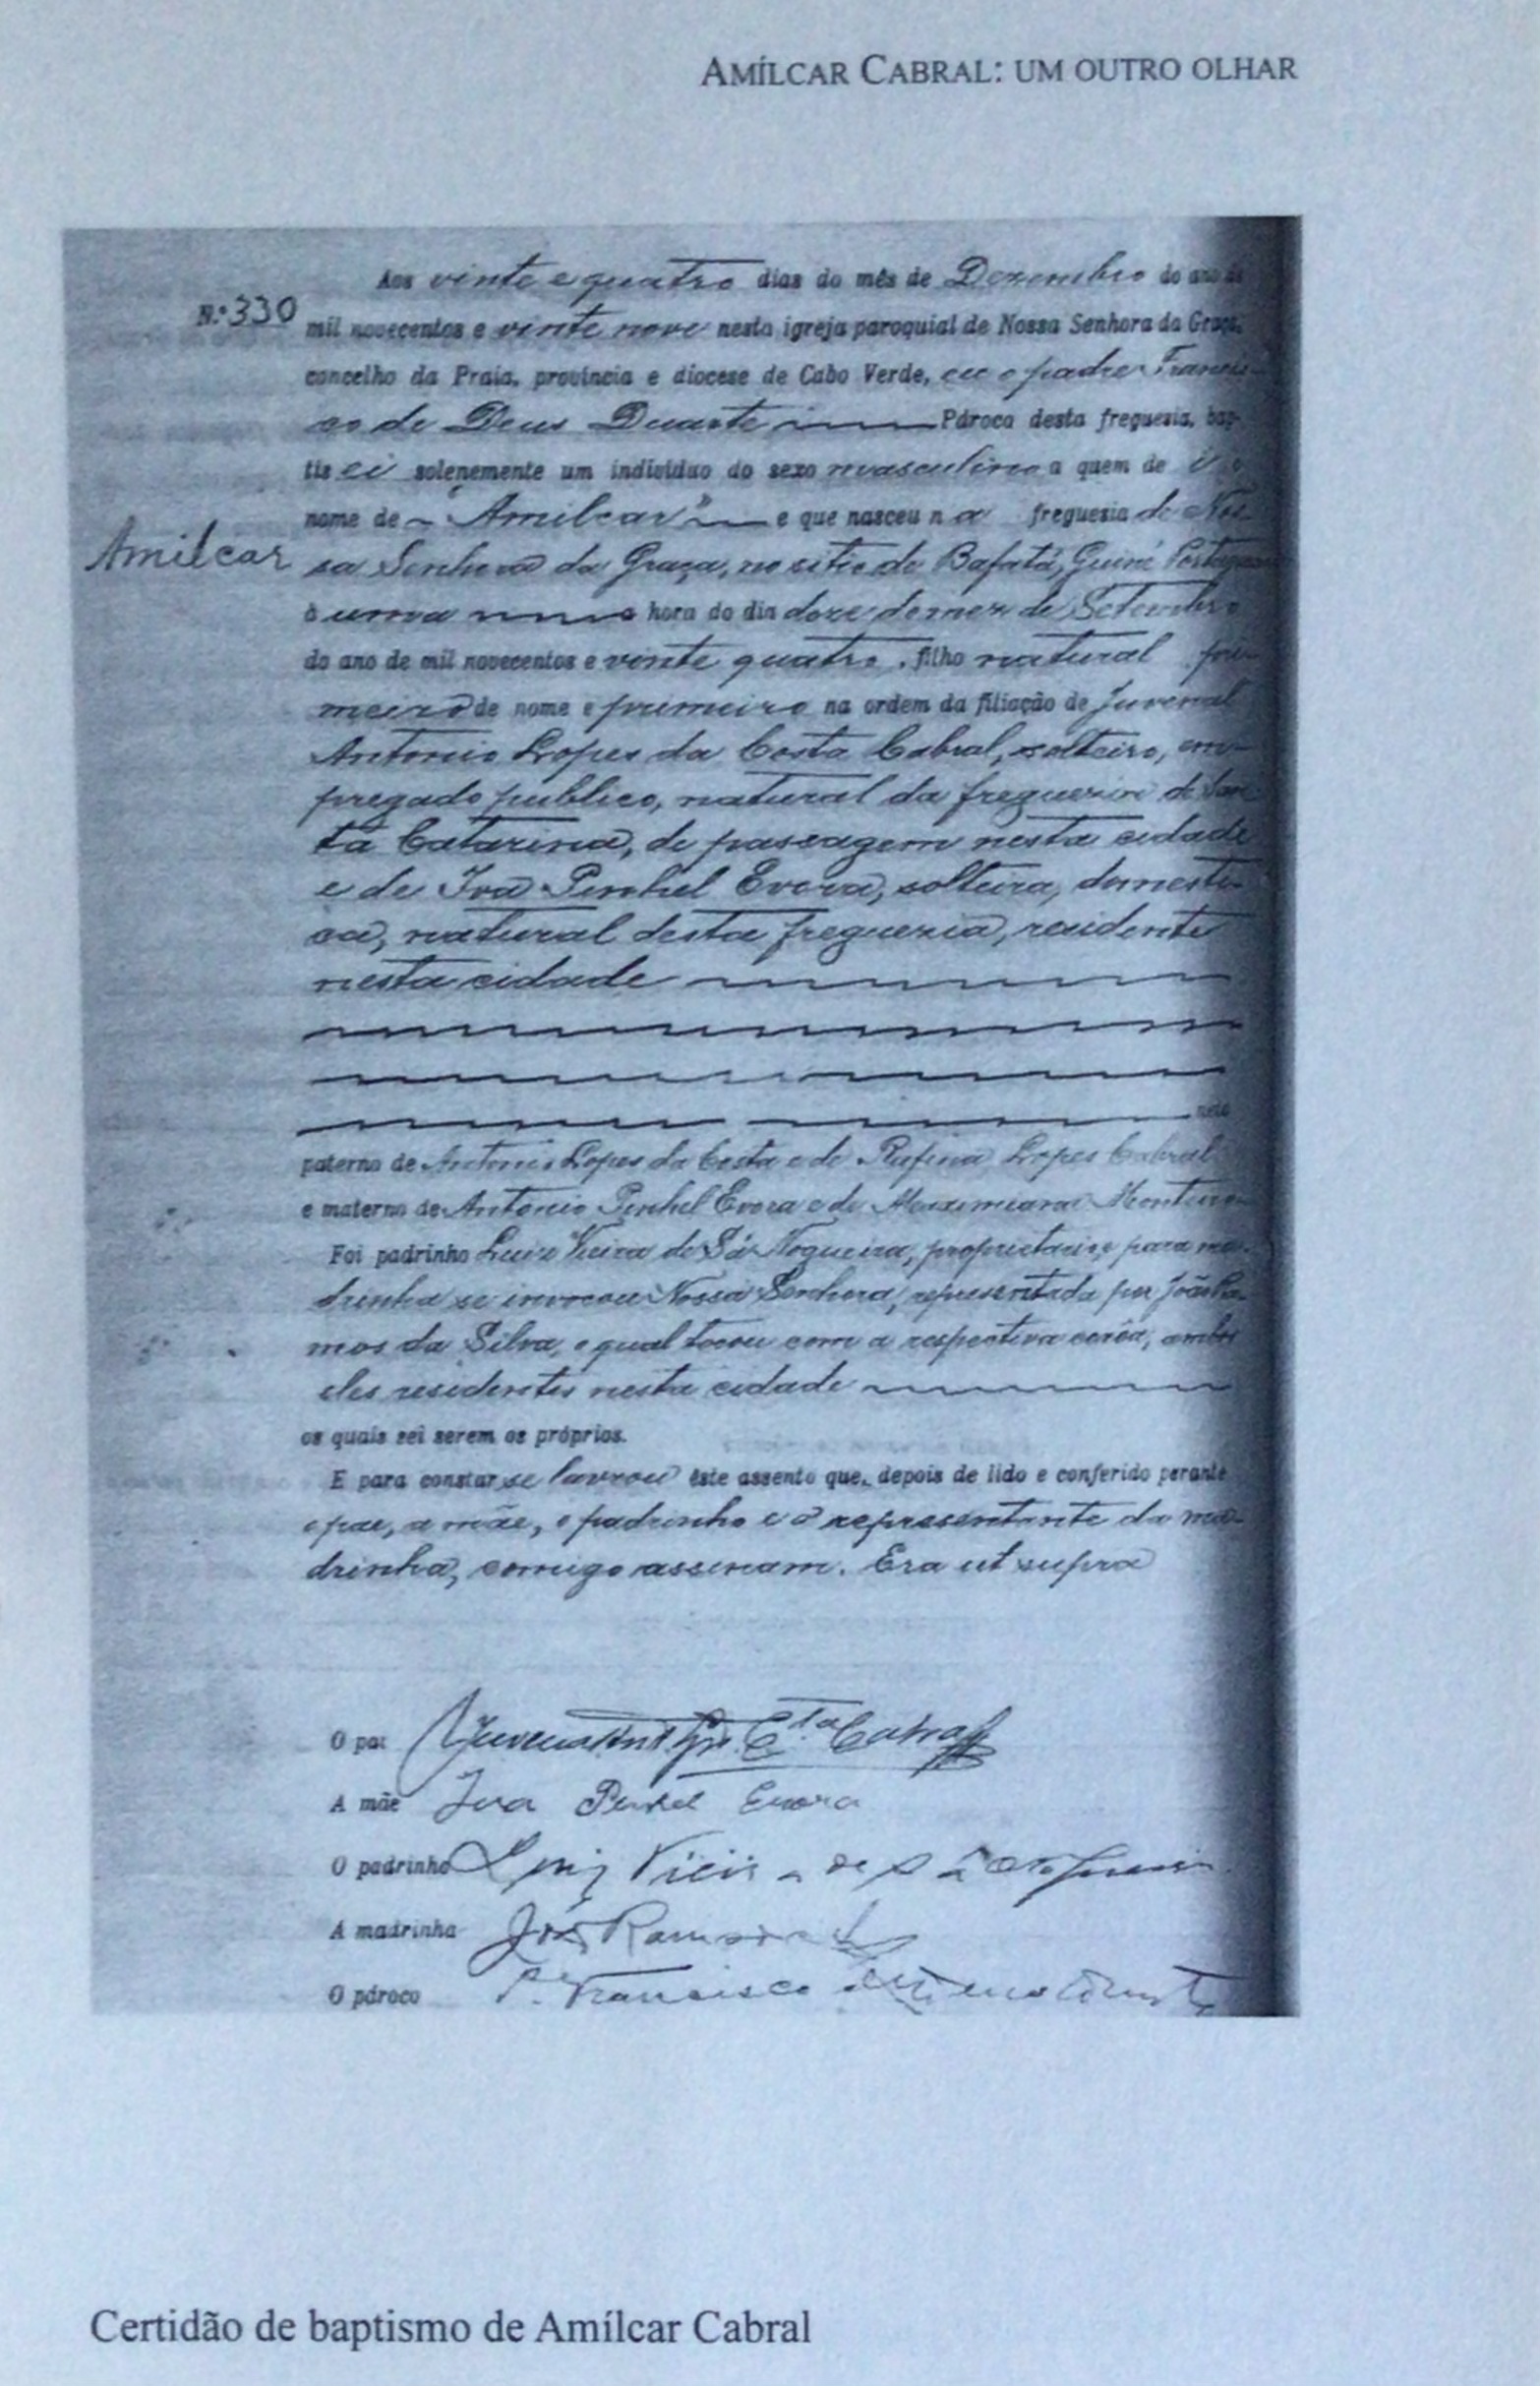 AMÍLCAR CABRAL: UM OUTRO OLHAR
Aos vinte e quatro dias do mês de Dezembro do ano de
N.º 330
mil novecentos e vinte nove nesta igreja paroquial de Nossa Senhora da Graça,
concelho da Praia, província e diocese de Cabo Verde, eu o padre Francis-
co de Deus Duarte Pároco desta freguesia, bap-
tisei solenemente um indivíduo do sexo masculino a quem dei o
nome de "Amilcar" e que nasceu na freguesia de Nos-
Amilcar
sa Senhora da Graça, no sitio de Bafatá, Guiné Portuguesa
à uma hora do dia doze do mez de Setembro
do ano de mil novecentos e vinte quatro, filho natural pri-
meiro de nome e primeiro na ordem da filiação de Juvenal
Antonio Lopes da Costa Cabral, solteiro, em-
pregado publico, natural da freguezia de San-
ta Catarina, de passagem nesta cidade
e de Iva Pinhel Evora, solteira, domesti-
ca, natural desta freguezia, residente
nesta cidade
neto
paterno de Antonio Lopes da Costa e de Rufina Lopes Cabral
e materno de Antonio Pinhel Evora e de Maximiana Monteiro
Foi padrinho Luiz Vieira de Sá Nogueira, proprietario, e para ma-
drinha se invocou Nossa Senhora, representada por João Ra-
mos da Silva, o qual tocou com a respectiva corôa, ambos
eles residentes nesta cidade
os quais sei serem os próprios.
E para constar se lavrou êste assento que, depois de lido e conferido perante
o pae, a mãe, o padrinho e o representante da ma-
drinha, comigo assinam. Era ut supra
O pai Juvenal Ant Lps. C.ta Cabral
A mãe Iva Pinhel Evora
O padrinho Luiz Vieira de Sá Nogueira
A madrinha João Ramos
O pároco P.e Francisco de Deus Duarte
Certidão de baptismo de Amílcar Cabral